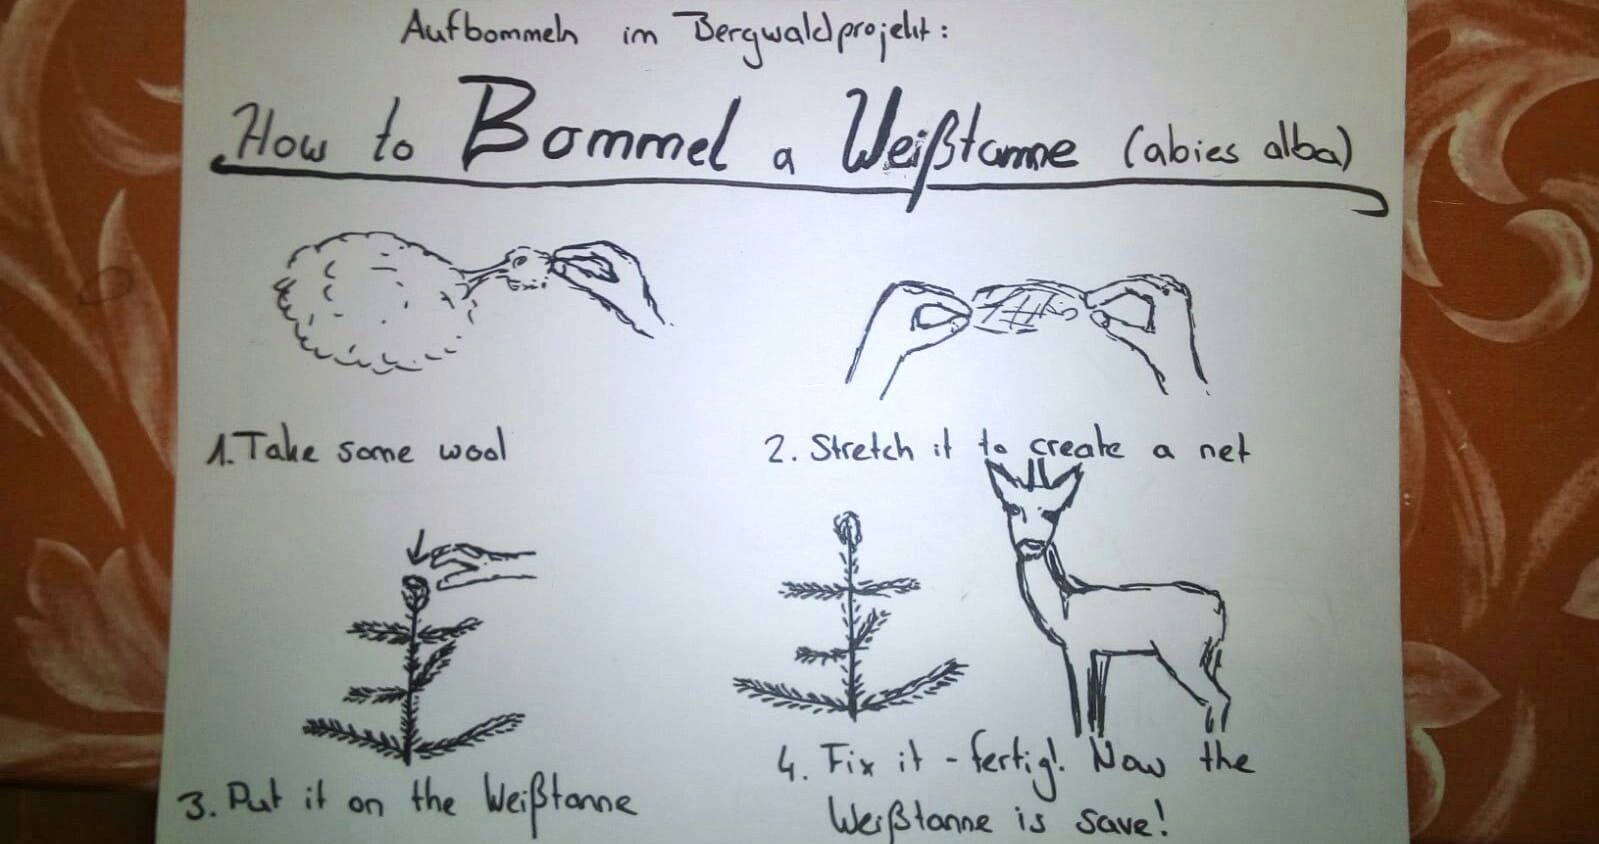 Aufbommeln im Bergwaldprojekt:
How to Bommel a Weißtanne (abies alba)
1. Take some wool
2. Stretch it to create a net
3. Put it on the Weißtanne
4. Fix it - fertig! Now the
Weißtanne is save!